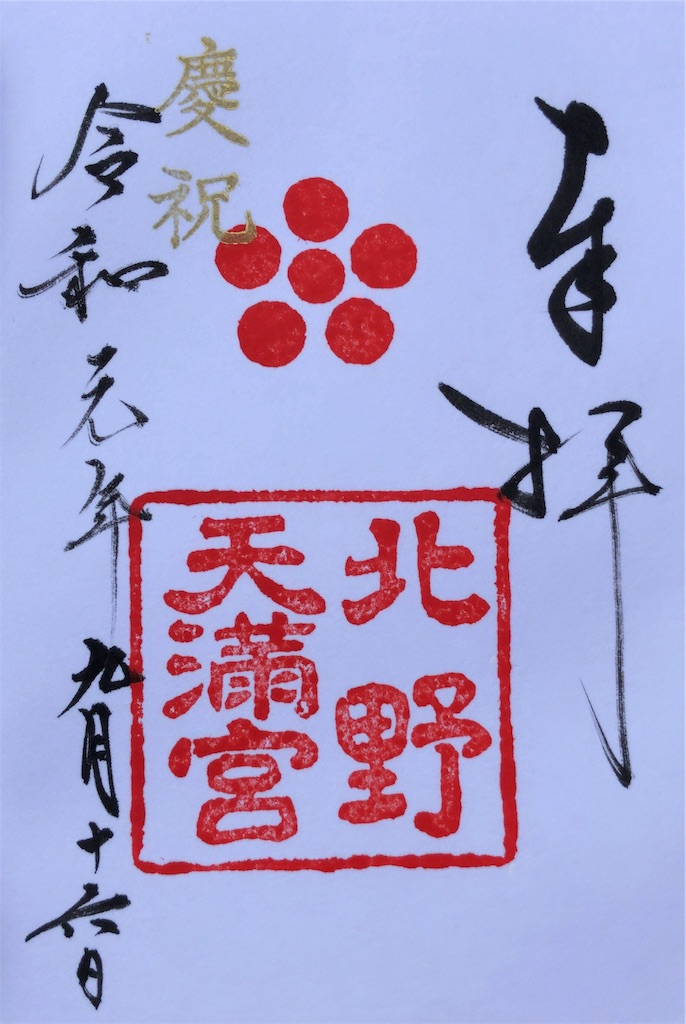 奉拝
北野
天満宮
慶祝
令和元年九月十六日